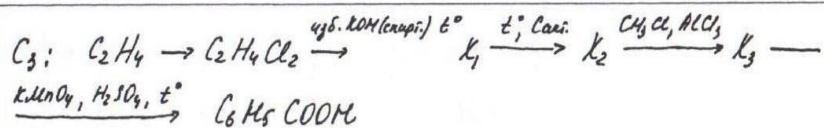 C₃: C₂H₄ → C₂H₄Cl₂ —изб. KOH(спирт.) t°→ X₁ —t°, Cакт.→ X₂ —CH₃Cl, AlCl₃→ X₃ —
—KMnO₄, H₂SO₄, t°→ C₆H₅COOH